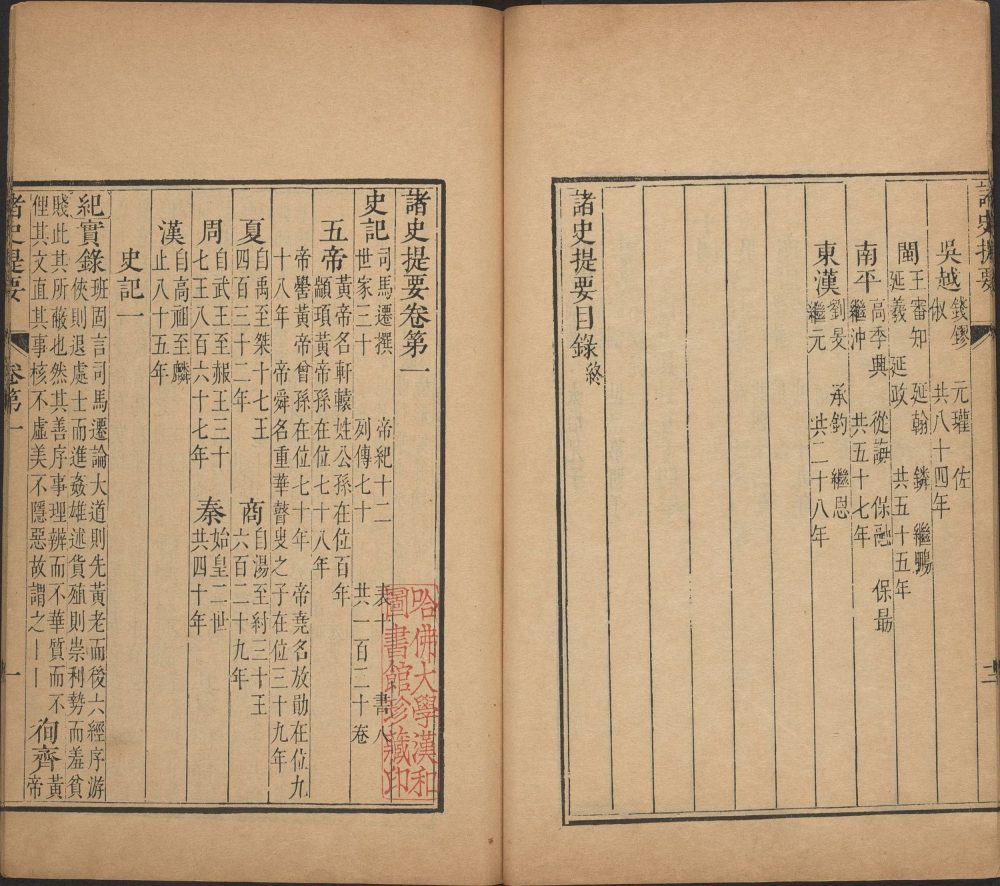 諸史提要
吳越 錢鏐 元瓘 佐
俶 共八十四年
閩 王審知 延翰 鏻 繼鵬
延羲 延政 共五十五年
南平 高季興 從誨 保融 保勗
繼沖 共五十七年
東漢 劉旻 承鈞 繼恩
繼元 共二十八年
諸史提要目錄終
二
諸史提要卷第一
史記 司馬遷撰 帝紀十二 表十 書八
世家三十 列傳七十 共一百二十卷
五帝 黃帝名軒轅姓公孫在位百年
顓頊黃帝孫在位七十八年
帝嚳黃帝曾孫在位七十年 帝堯名放勛在位九
十八年 帝舜名重華瞽叟之子在位三十九年
夏 自禹至桀十七王 商 自湯至紂三十王
四百三十二年 六百二十九年
周 自武王至赧王三十 秦 始皇二世
七王八百六十七年 共四十年
漢 自高祖至麟
止八十五年
史記一
紀實錄 班固言司馬遷論大道則先黃老而後六經序游
俠則退處士而進姦雄述貨殖則崇利勢而羞貧
賤此其所蔽也然其善序事理辨而不華質而不
俚其文直其事核不虛美不隱惡故謂之丨丨 徇齊 黃
帝
諸史提要 卷第一 一
哈佛大學漢和
圖書館珍藏印